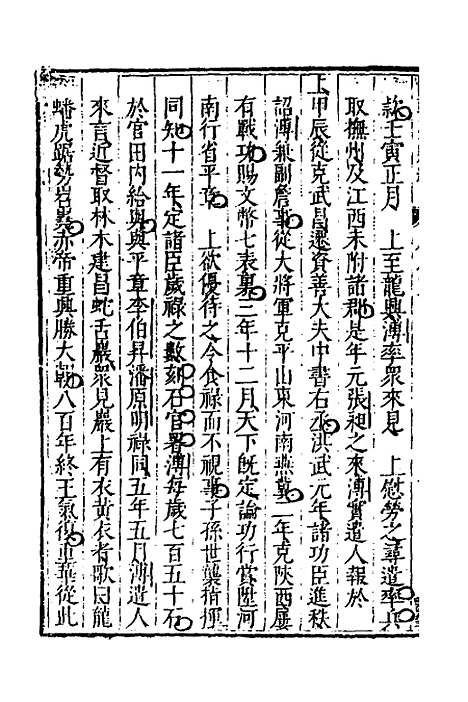 款壬寅正月　上至龍興溥率眾來見　上慰勞之尋遣率兵
取撫州及江西未附諸郡是年元張昶之來溥實遣人報於
上甲辰從克武昌遷資善大夫中書右丞洪武元年諸功臣進秩
詔溥兼副詹事從大將軍克平山東河南燕冀二年克陝西屢
有戰功賜文幣七表裏三年十二月天下既定論功行賞陞河
南行省平章　上欲優待之令食祿而不視事子孫世襲指揮
同知十一年定諸臣歲祿之數刻石官署溥每歲七百五十石
於官田內給與與平章李伯昇潘原明祿同五年五月溥遣人
來言近督取林木建昌蛇舌巖眾見巖上有衣黃衣者歌曰龍
蟠虎踞勢岩嶤赤帝重興勝大朝八百年終王氣復重華從此